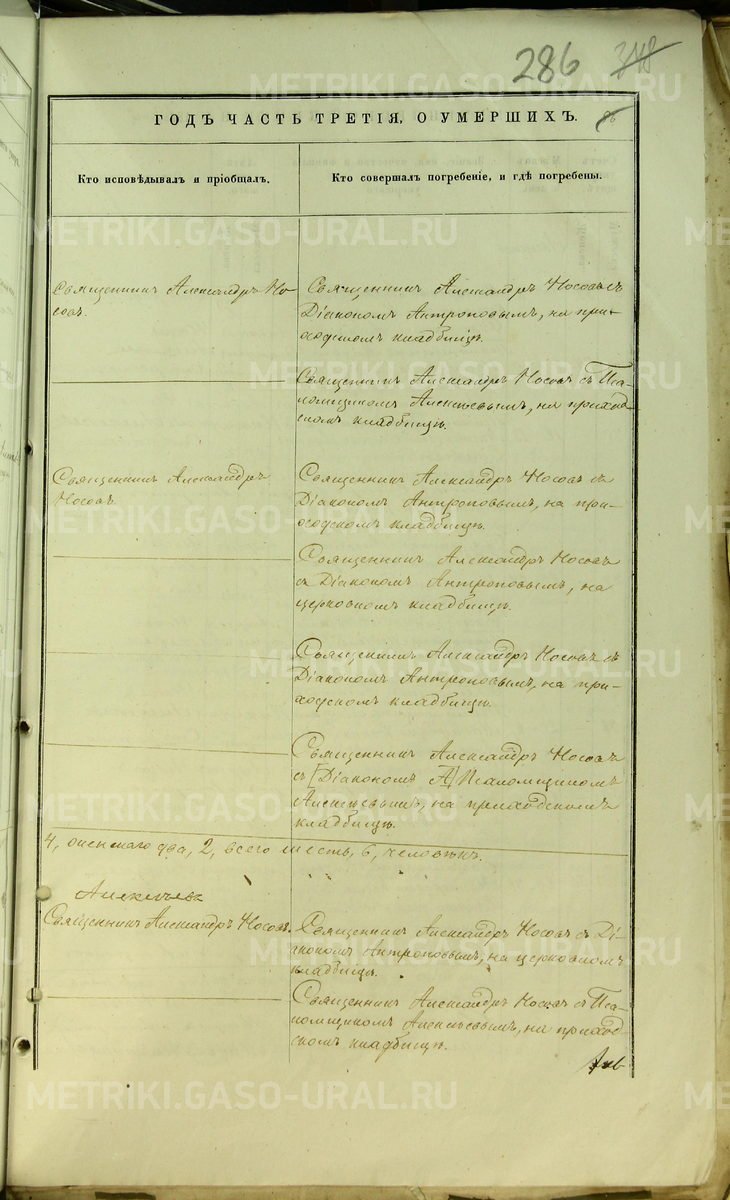 286 348
ГОДЪ ЧАСТЬ ТРЕТІЯ, О УМЕРШИХЪ.
Кто исповѣдывалъ и пріобщалъ.
Кто совершалъ погребеніе, и гдѣ погребены.
Священникъ Александръ Но-
совъ.
Священникъ Александръ Носовъ съ
Діакономъ Антроповымъ, на при-
ходскомъ кладбищѣ.
Священникъ Александръ Носовъ съ Пса-
ломщикомъ Алексѣевымъ, на приход-
скомъ кладбищѣ.
Священникъ Александръ
Носовъ.
Священникъ Александръ Носовъ съ
Діакономъ Антроповымъ, на при-
ходскомъ кладбищѣ.
Священникъ Александръ Носовъ
съ Діакономъ Антроповымъ, на
церковномъ кладбищѣ.
Священникъ Александръ Носовъ съ
Діакономъ Антроповымъ, на при-
ходскомъ кладбищѣ.
Священникъ Александръ Носовъ
съ [Діакономъ А] Псаломщикомъ
Алексѣевымъ, на приходскомъ
кладбищѣ.
4, женскаго два, 2, всего шесть, 6, человѣкъ.
Алексѣевъ
Священникъ Александръ Носовъ.
Священникъ Александръ Носовъ съ Ді-
акономъ Антроповымъ, на церковномъ
кладбищѣ.
Священникъ Александръ Носовъ съ Пса-
ломщикомъ Алексѣевымъ, на приход-
скомъ кладбищѣ.
METRIKI.GASO-URAL.RU